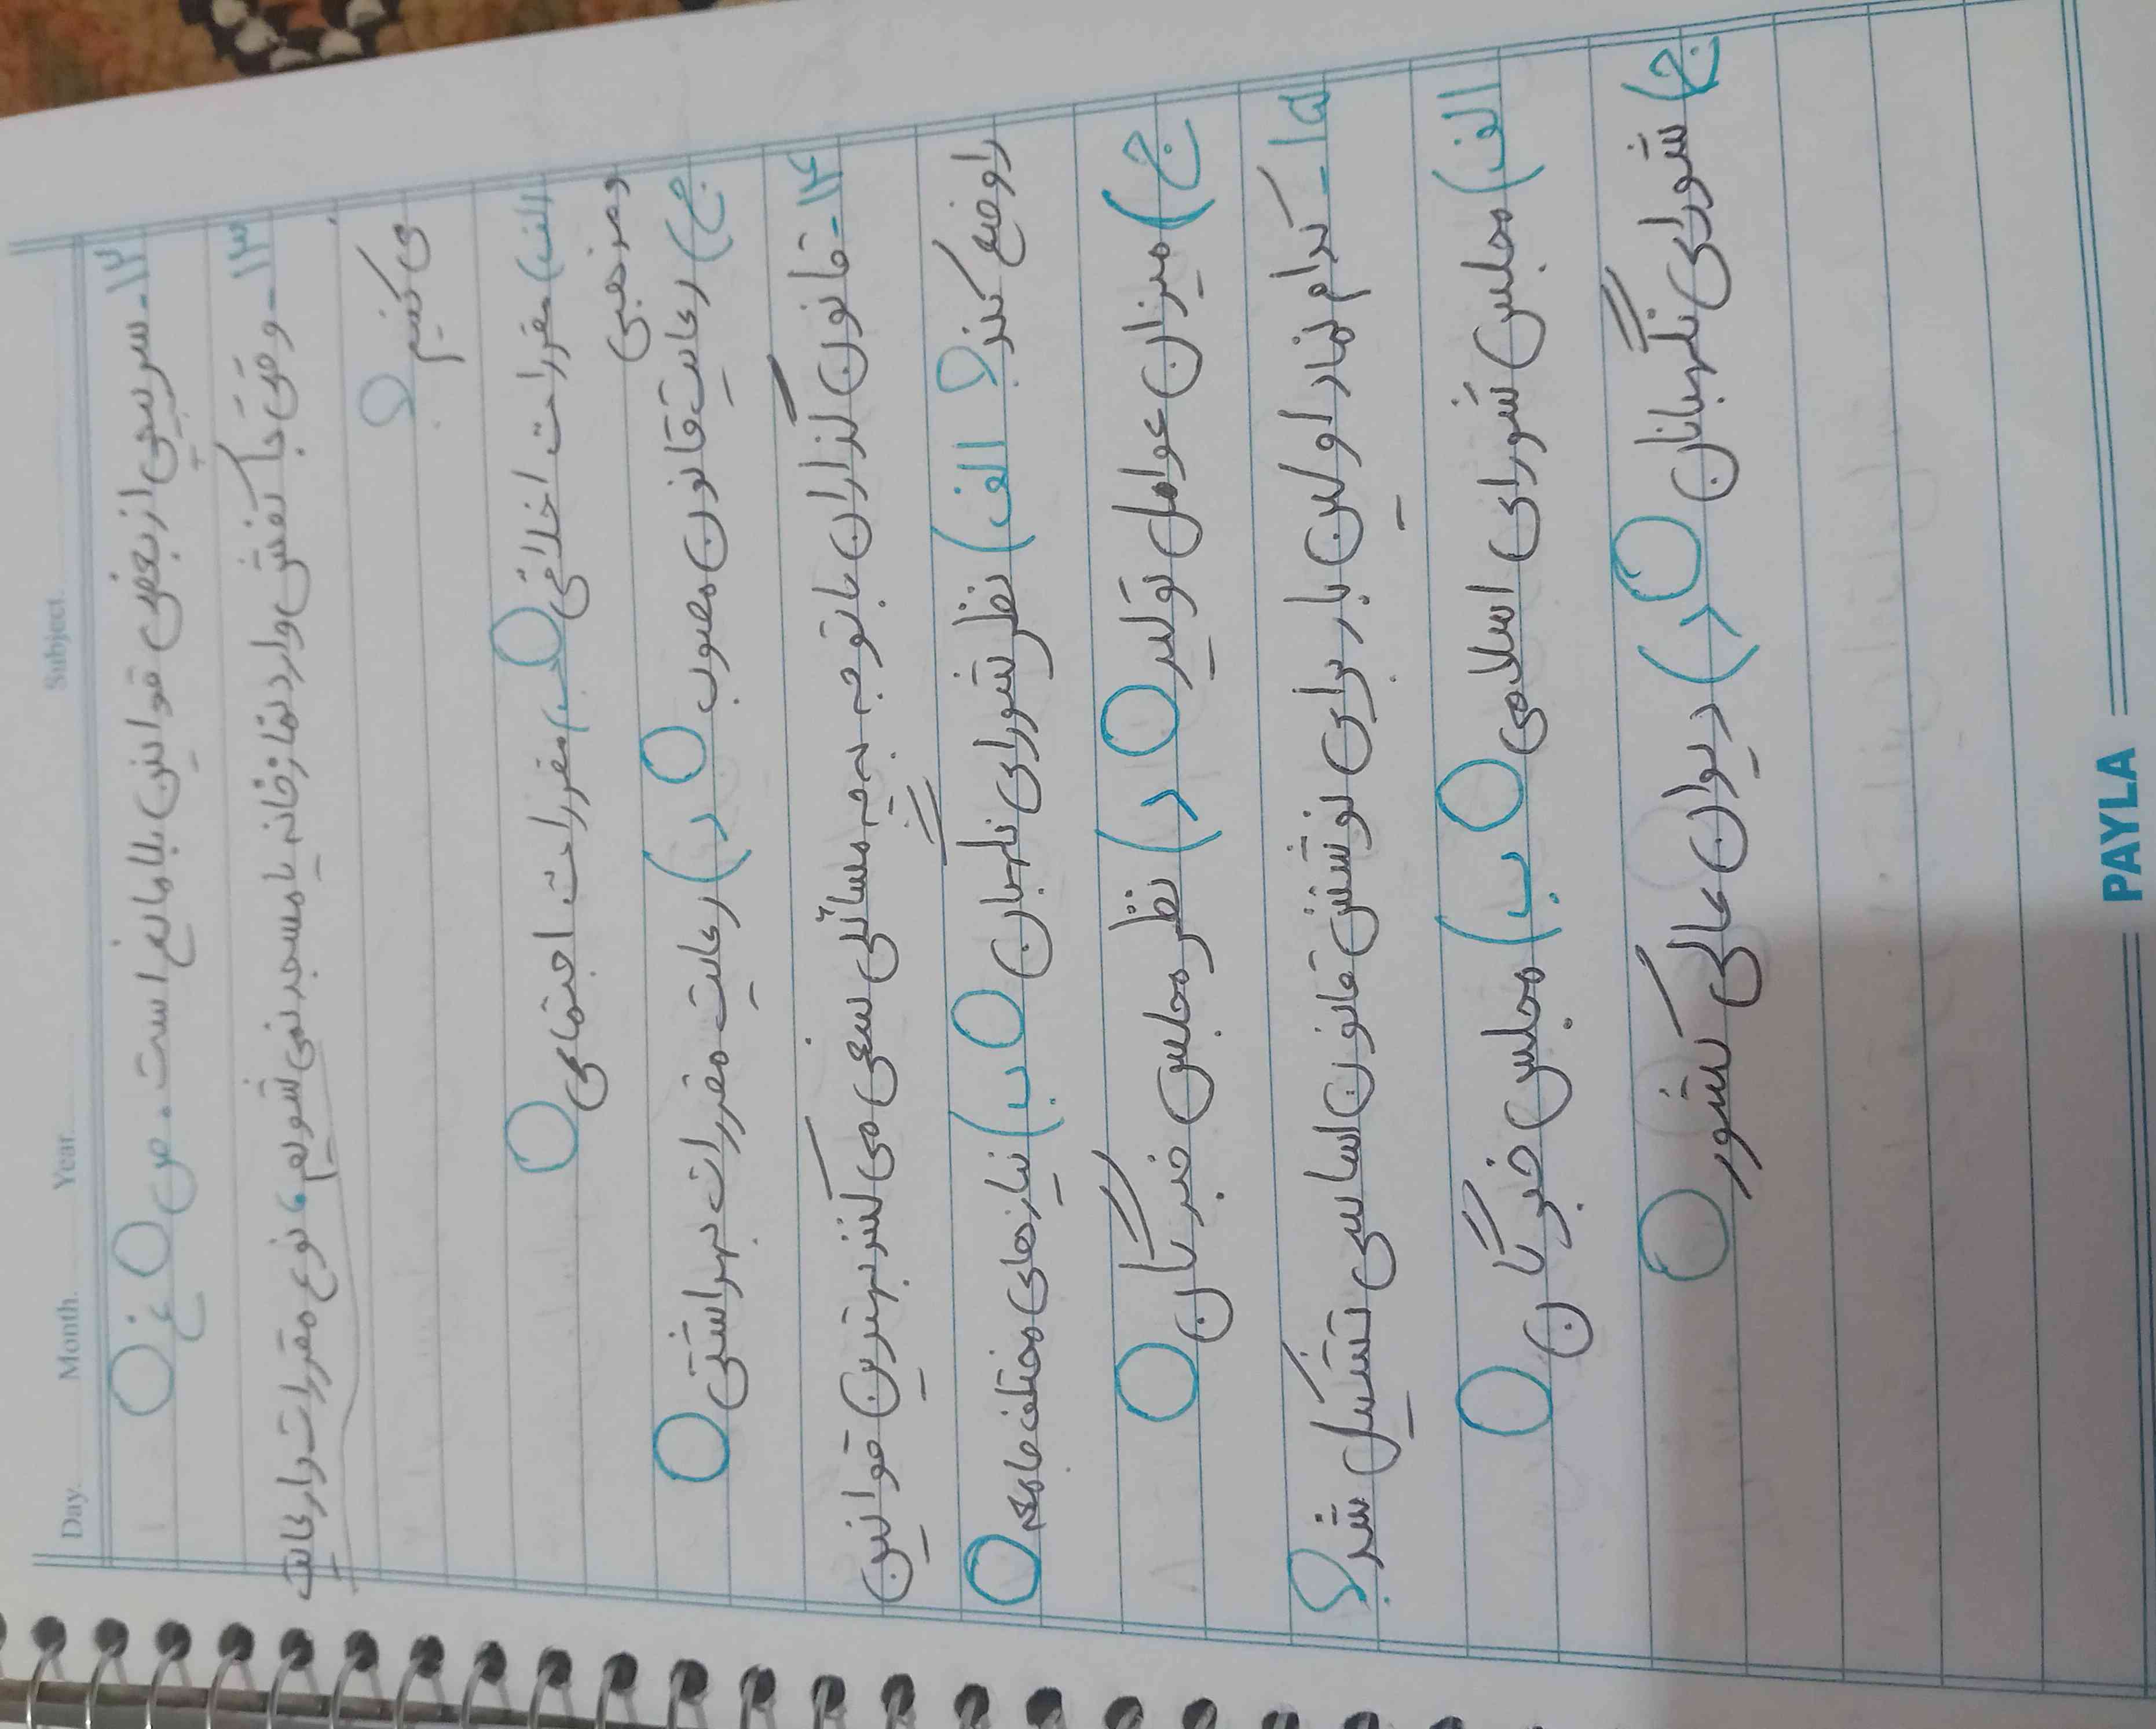 Subject. Year. Month. Day.
۱۲- سرپیچی از بعضی قوانین بلامانع است. ص○ غ○
۱۳- وقتی با کفش وارد نمازخانه یا مسجد نمی شویم، نوع مقررات را رعایت
می کنیم؟
الف) مقررات اخلاقی○ ب) مقررات اجتماعی○
و مذهبی
ج) رعایت قانون مصوب○ د) رعایت مقررات بهداشتی○
۱۴- قانون گذاران با توجه به چه مسائلی سعی می کنند بهترین قوانین
را وضع کنند؟ الف) نظر شورای نگهبان○ ب) نیازهای مختلف جامعه○
ج) میزان عوامل تولید○ د) نظر مجلس خبرگان○
۱۵- کدام نهاد اولین بار برای نوشتن قانون اساسی تشکیل شد؟
الف) مجلس شورای اسلامی○ ب) مجلس خبرگان○
ج) شورای نگهبانان○ د) دیوان عالی کشور○
PAYLA